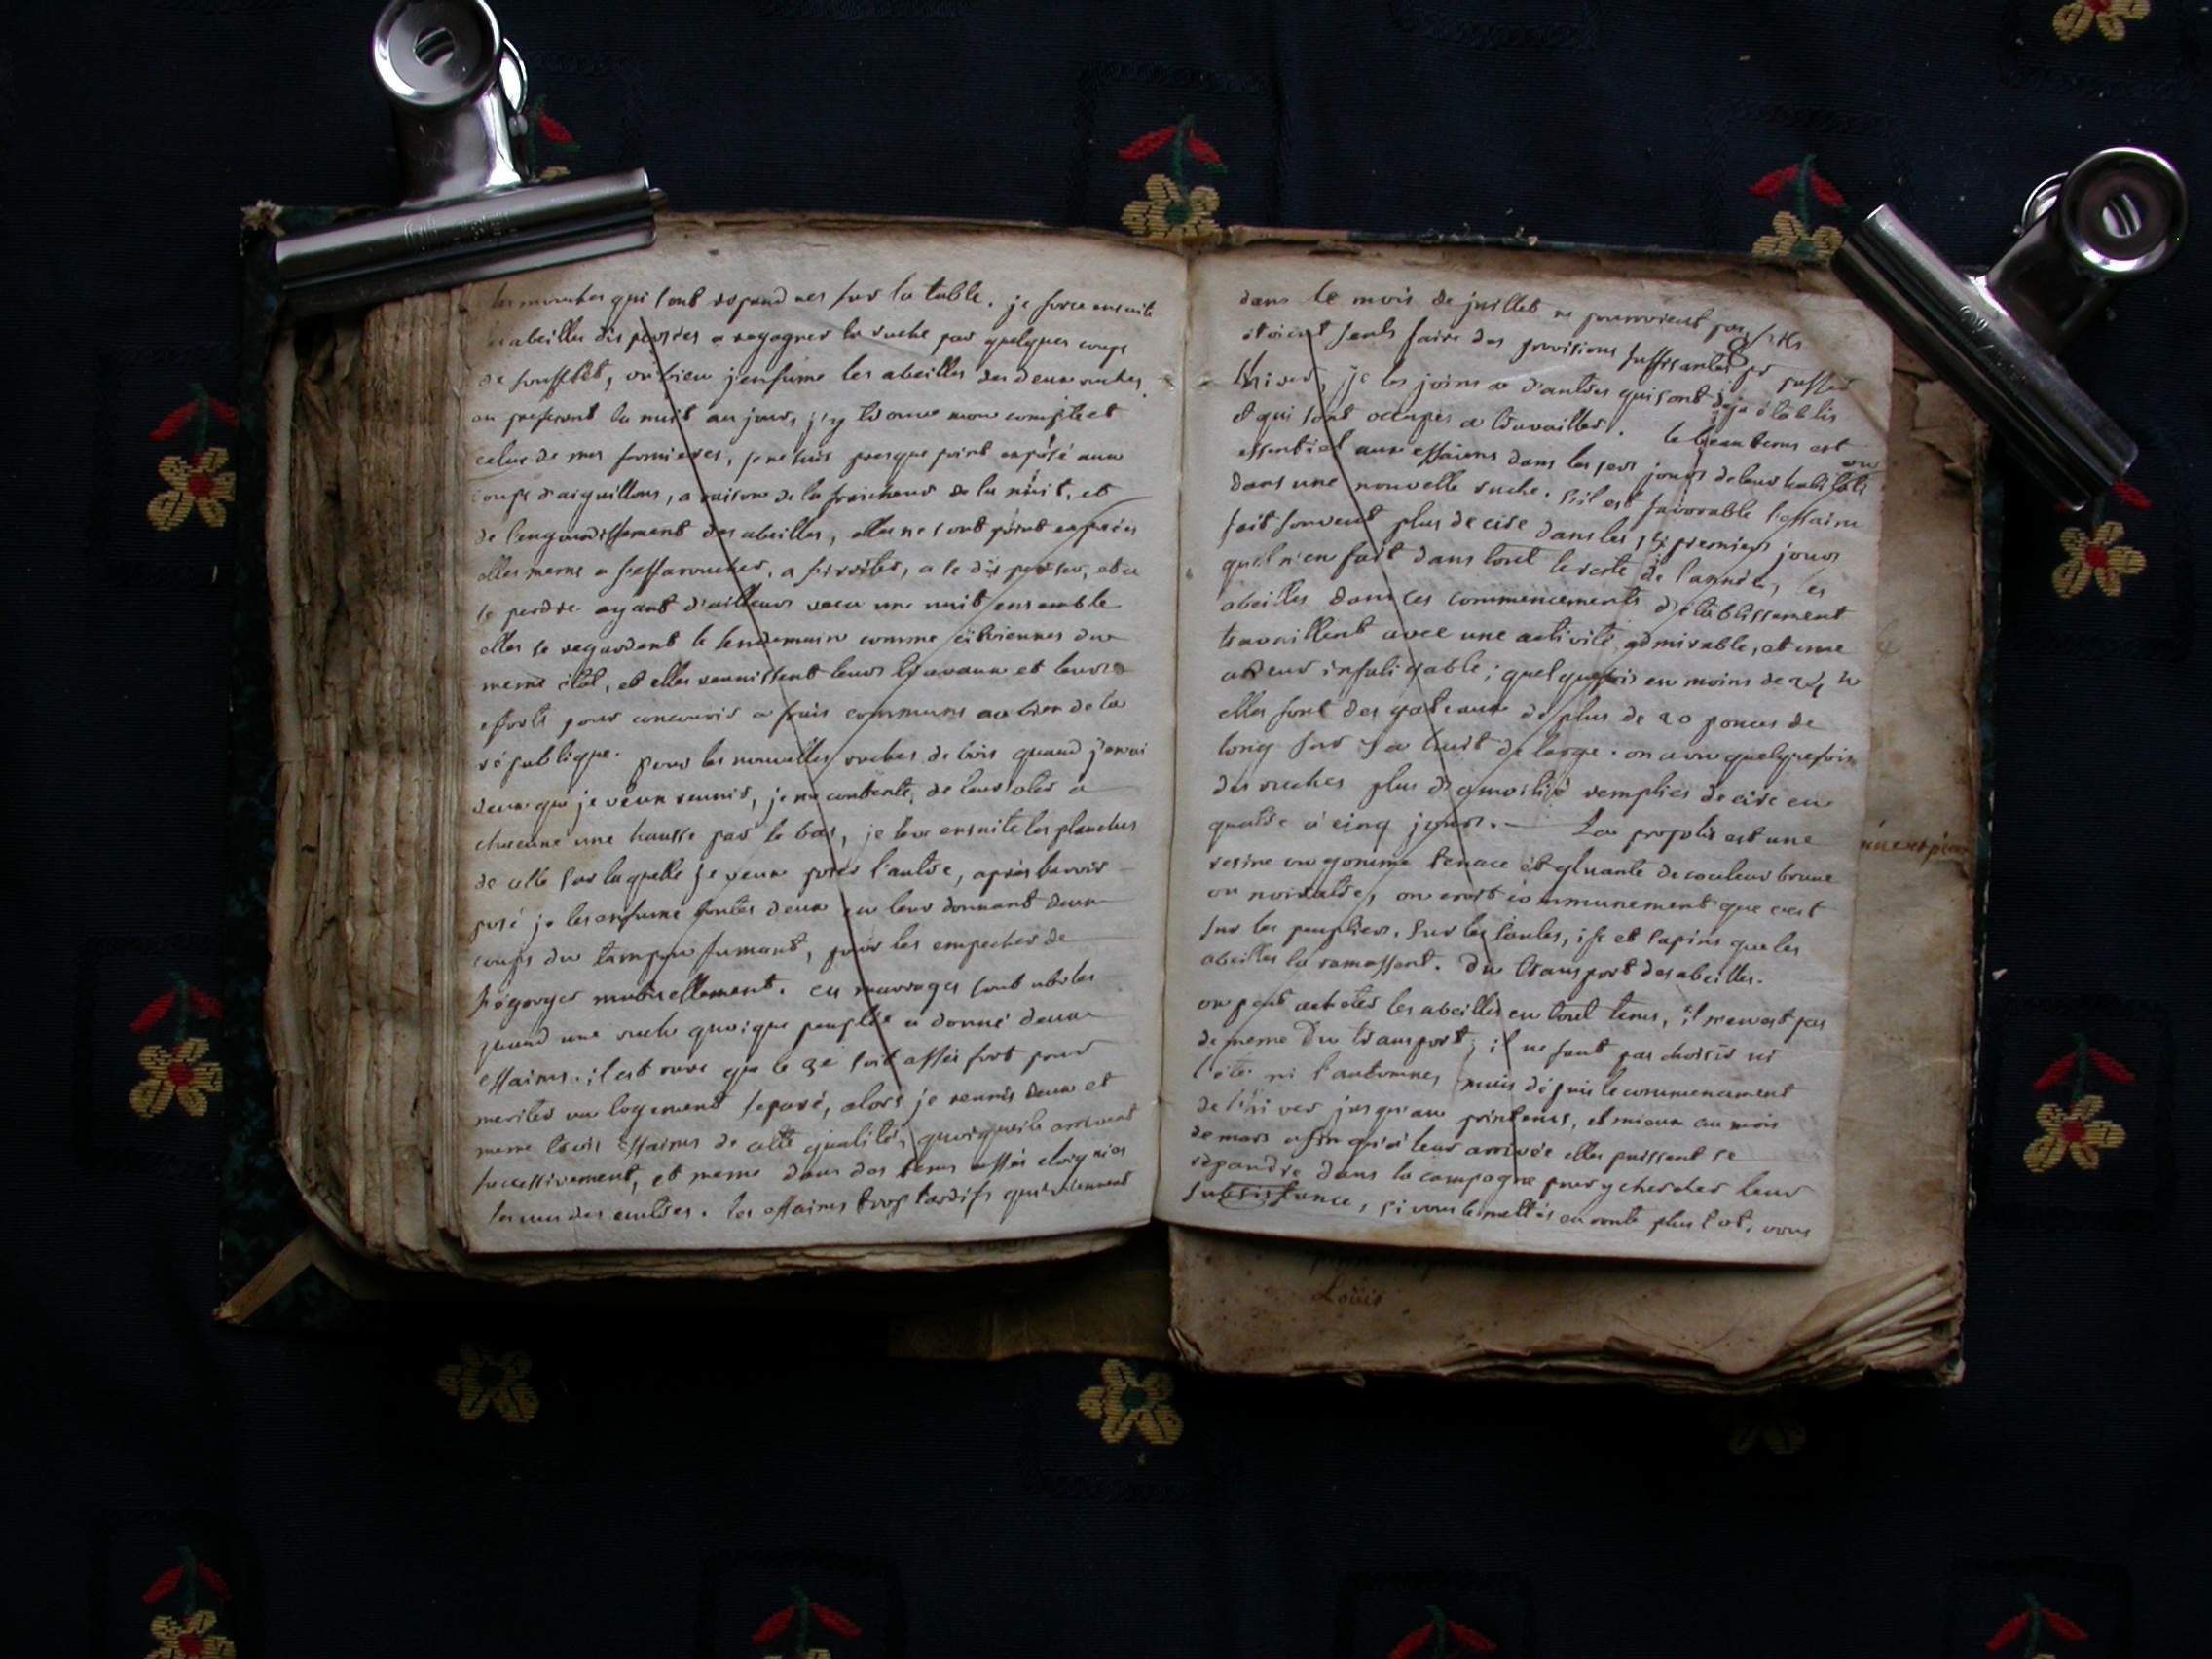 les mouches qui sont repandues sur la table. je force ensuite
les abeilles dispersées a regagner la ruche par quelques coups
de soufflet, ou bien j'enfume les abeilles des deux ruches.
en preferant la nuit au jour, j'y trouve mon compte et
celui de mes fermieres, je ne suis presque point exposé aux
coups d'aiguillons, a raison de la fraicheur de la nuit, et
de l'engourdissement des abeilles, elles ne sont point exposées
elles meme a s'effaroucher, a s'irriter, a se disperser, et a
se perdre ayant d'ailleurs vecu une nuit ensemble
elles se regardent le lendemain comme citoiennes du
meme état, et elles reunissent leurs travaux et leurs
efforts pour concourir a frais communs au bien de la
république. pour les nouvelles ruches de bois quand j'en ai
deux que je veux reunir, je me contente, de leur oter a
chacune une hausse par le bas, je leve ensuite les planches
de celle sur laquelle je veux poser l'autre, après l'avoir
posé je les enfume toutes deux en leur donnant deux
coups du tampon fumant, pour les empecher de
s'égorger mutuellement. ces mariages sont utiles
quand une ruche quoique peuplée a donné deux
essaims. il est rare que le 2e soit assés fort pour
meriter un logement separé, alors je reunis deux et
meme trois essaims de cette qualité, quoiqu'ils arrivent
successivement, et meme dans des tems assés eloignés
les uns des autres. les essaims trop tardifs qui viennent
dans le mois de juillet ne pourroient pas, s'ils
étoient seuls faire des provisions suffisantes pr passer
l'hiver, je les joins a d'autres qui sont deja établis
et qui sont occupés a travailler. le beau tems est
essentiel aux essaims dans les 1ers jours de leur habitation
dans une nouvelle ruche. s'il est favorable l'essaim
fait souvent plus de cire dans les premiers jours
qu'il n'en fait dans tout le reste de l'année, les
abeilles dans ces commencements d'établissement
travaillent avec une activité admirable, et une
ardeur infatigable; quelquefois en moins de 24 h
elles font des gateaux de plus de 20 pouces de
long sur 7 a huit de large. on a vu quelquefois
des ruches plus d'a moitié remplies de cire en
quatre à cinq jours. — La propolis est une
resine ou gomme tenace et gluante de couleur brune
ou noiratre, on croit communement que c'est
sur les peupliers, sur les saules, ifs et sapins que les
abeilles la ramassent. Du transport des abeilles.
on peut acheter les abeilles en tout tems, il n'en est pas
de meme du transport; il ne faut pas choisir ni
l'été ni l'automne, mais depuis le commencement
de l'hiver jusqu'au printems, et mieux au mois
de mars afin qu'a leur arrivée elles puissent se
répandre dans la campagne pour y chercher leur
subsistance, si vous les mettés en route plus tot, vous
Louis